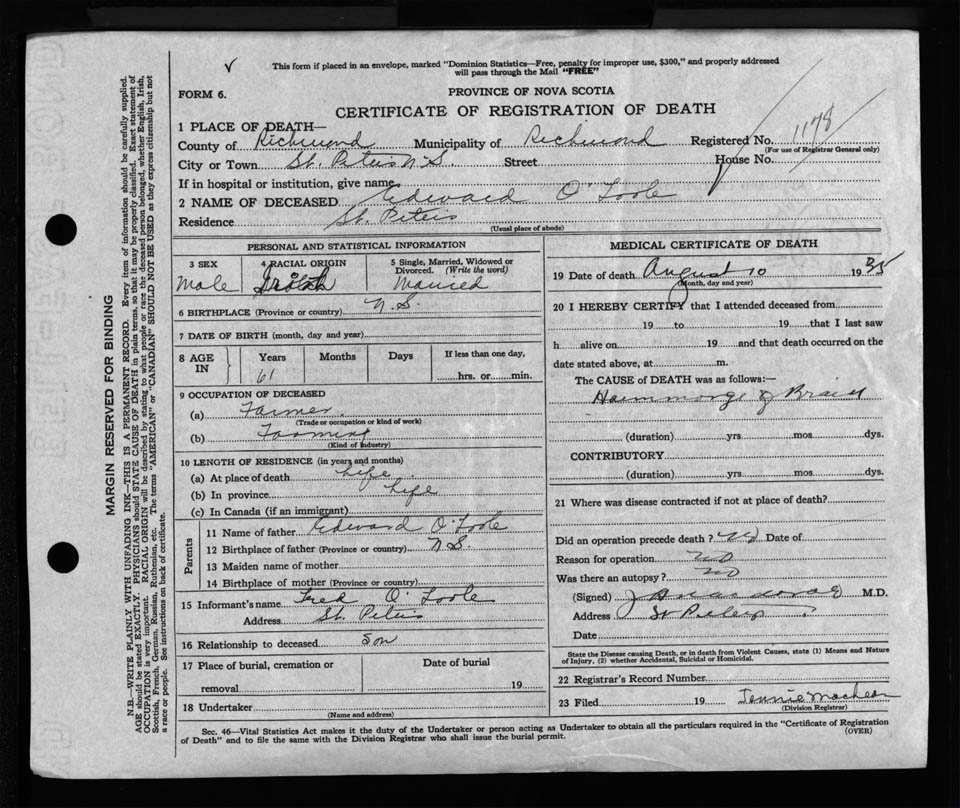 This form if placed in an envelope, marked "Dominion Statistics—Free, penalty for improper use, $300," and properly addressed
will pass through the Mail "FREE"
FORM 6.
PROVINCE OF NOVA SCOTIA
CERTIFICATE OF REGISTRATION OF DEATH
1 PLACE OF DEATH—
County of Richmond Municipality of Richmond Registered No. 1178
(For use of Registrar General only)
City or Town St. Peters N.S. Street House No.
If in hospital or institution, give name
2 NAME OF DECEASED Edward O'Toole
Residence St. Peters
(Usual place of abode)
PERSONAL AND STATISTICAL INFORMATION
3 SEX 4 RACIAL ORIGIN 5 Single, Married, Widowed or
Divorced. (Write the word)
Male Married
6 BIRTHPLACE (Province or country) N.S.
7 DATE OF BIRTH (month, day and year)
8 AGE IN Years Months Days If less than one day,
61 hrs. or min.
9 OCCUPATION OF DECEASED
(a) Farmer
(Trade or occupation or kind of work)
(b) Farming
(Kind of industry)
10 LENGTH OF RESIDENCE (in years and months)
(a) At place of death Life
(b) In province Life
(c) In Canada (if an immigrant)
Parents
11 Name of father Edward O'Toole
12 Birthplace of father (Province or country) N.S.
13 Maiden name of mother
14 Birthplace of mother (Province or country)
15 Informant's name Fred O'Toole
Address St. Peters
16 Relationship to deceased Son
17 Place of burial, cremation or Date of burial
removal 19
18 Undertaker
(Name and address)
MEDICAL CERTIFICATE OF DEATH
19 Date of death August 10 1935
(Month, day and year)
20 I HEREBY CERTIFY that I attended deceased from
19 to 19 that I last saw
h alive on 19 and that death occurred on the
date stated above, at m.
The CAUSE of DEATH was as follows:—
Haemmorage of Brain
(duration) yrs. mos. dys.
CONTRIBUTORY
(duration) yrs. mos. dys.
21 Where was disease contracted if not at place of death?
Did an operation precede death? No Date of
Reason for operation No
Was there an autopsy? No
(Signed) M.D.
Address St Peters
Date
State the Disease causing Death, or in death from Violent Causes, state (1) Means and Nature
of Injury, (2) whether Accidental, Suicidal or Homicidal.
22 Registrar's Record Number
23 Filed 19 Jennie MacLean
(Division Registrar)
Sec. 46—Vital Statistics Act makes it the duty of the Undertaker or person acting as Undertaker to obtain all the particulars required in the "Certificate of Registration
of Death" and to file the same with the Division Registrar who shall issue the burial permit. (OVER)
MARGIN RESERVED FOR BINDING
N.B.—WRITE PLAINLY WITH UNFADING INK—THIS IS A PERMANENT RECORD. Every item of information should be carefully supplied.
AGE should be stated EXACTLY. PHYSICIANS should STATE CAUSE OF DEATH in plain terms, so that it may be properly classified. Exact statement of
OCCUPATION is very important. RACIAL ORIGIN will be described by stating to what people or race the deceased person belonged, whether English, Irish,
Scottish, French, German, Russian, Ruthenian, etc. The terms "AMERICAN" or "CANADIAN" SHOULD NOT BE USED as they express citizenship but not
a race or people. See instructions on back of certificate.